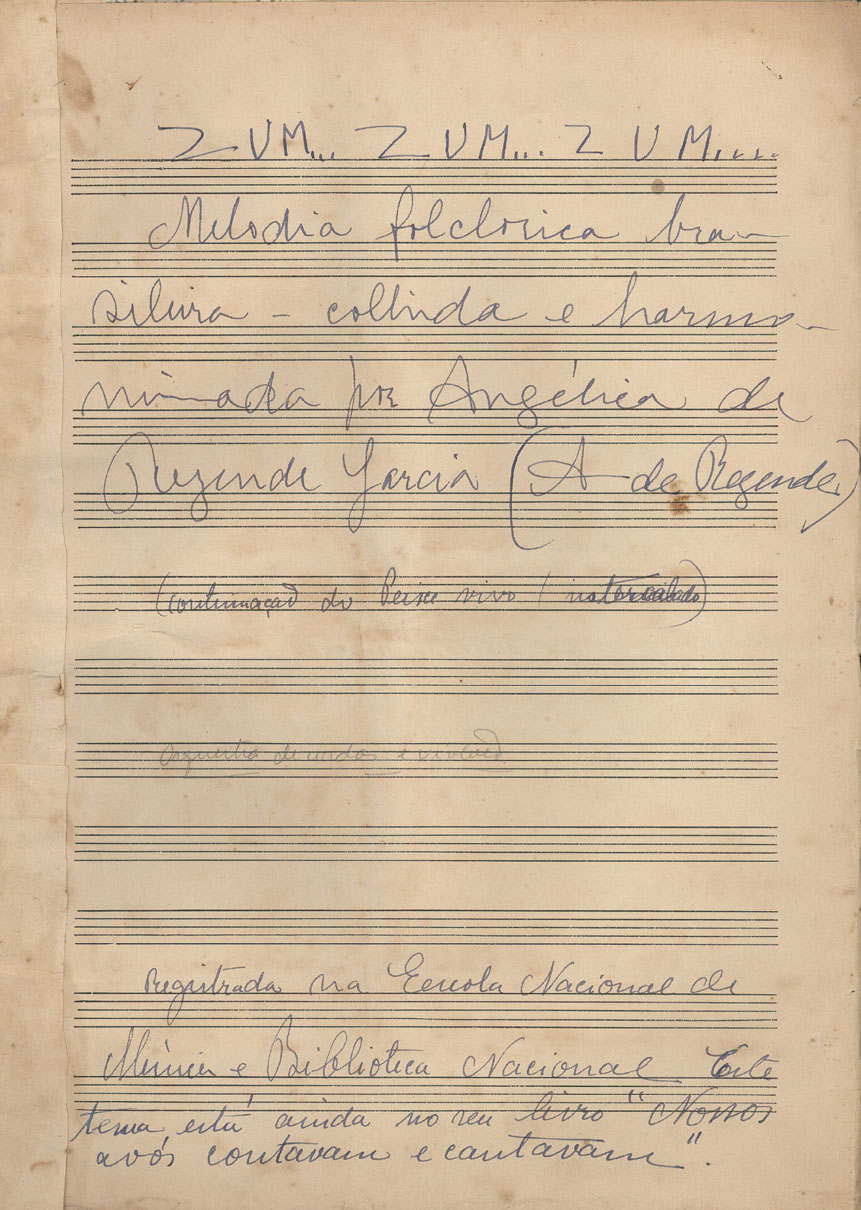 ZUM... ZUM... ZUM....
Melodia folclorica bra-
sileira - colhida e harmo-
nizada por Angélica de
Rezende Garcia (A de Rezende)
(continuação do Peixe vivo (intercalado)
Orquestra de cordas e violões
Registrada na Escola Nacional de
Música e Biblioteca Nacional Este
tema está ainda no seu livro "Nossos
avós contavam e cantavam".